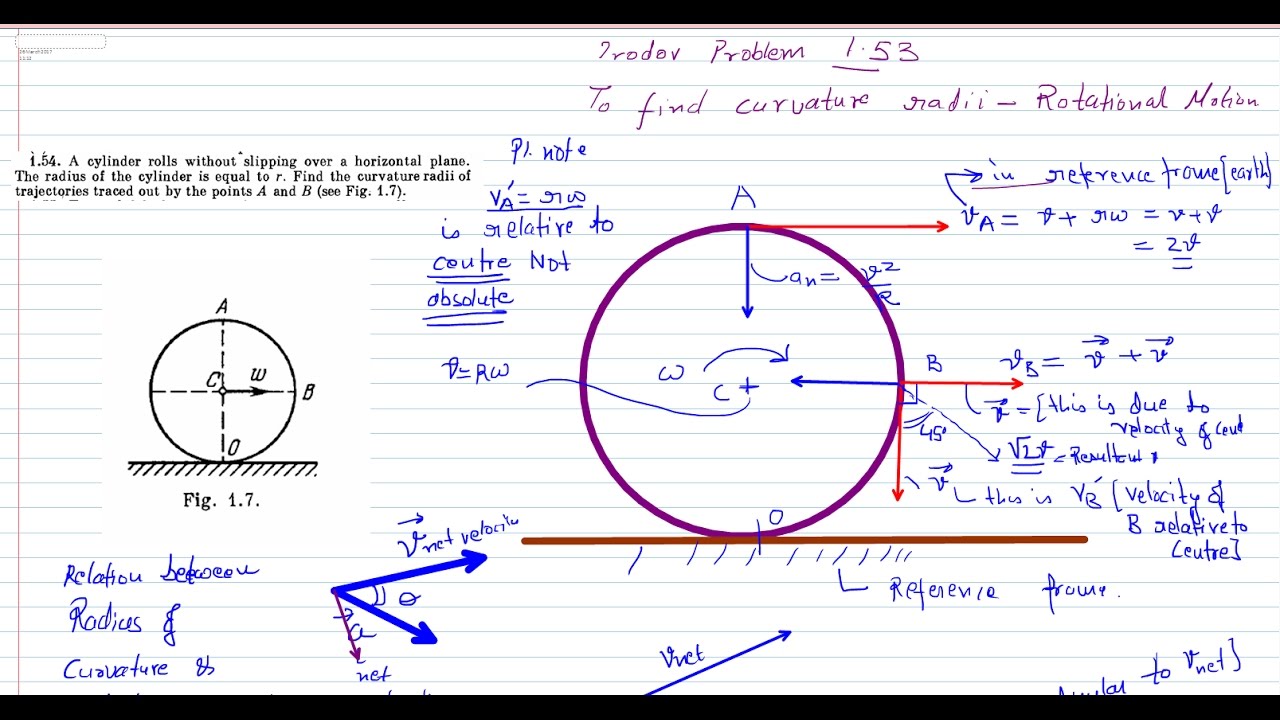 Irodov Problem 1.53
To find curvature radii - Rotational Motion
1.54. A cylinder rolls without slipping over a horizontal plane.
The radius of the cylinder is equal to r. Find the curvature radii of
trajectories traced out by the points A and B (see Fig. 1.7).
Pl. note
v'A = rω
is relative to
centre Not
absolute
in reference frame [earth]
vA = v + rω = v + v
= 2v
A
an = v²/R
v = Rω
ω
C
B
vB = v + v
v = [this is due to
velocity of cent
45°
√2v = Resultant
v
this is vB' [velocity of
B relative to
centre]
O
Reference frame.
A
C
w
B
O
Fig. 1.7.
v net velocity
θ
a
net
Relation between
Radius of
Curvature &
vnet
to vnet]